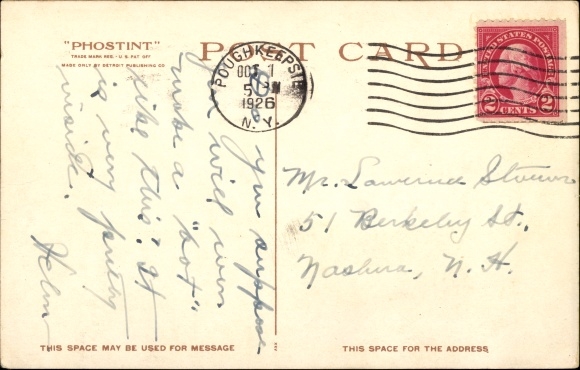 "PHOSTINT"
TRADE MARK REG. U.S. PAT. OFF
MADE ONLY BY DETROIT PUBLISHING CO.
POST CARD
POUGHKEEPSIE
OCT 1
5 PM
1926
N.Y.
UNITED STATES POSTAGE
2 CENTS 2
Do you suppose
you will ever
make a "hot"
like this? It
is very pretty
inside.
Helen
Mr. Lawrence
51 Berkeley St.,
Nashua, N. H.
THIS SPACE MAY BE USED FOR MESSAGE
THIS SPACE FOR THE ADDRESS